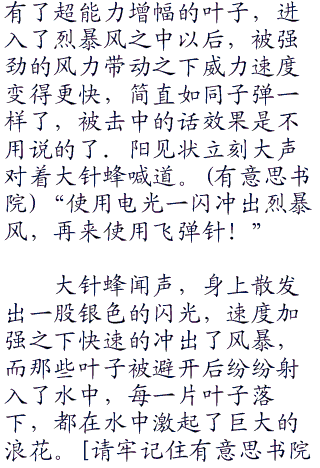 有了超能力增幅的叶子，进
入了烈暴风之中以后，被强
劲的风力带动之下威力速度
变得更快，简直如同子弹一
样了，被击中的话效果是不
用说的了．阳见状立刻大声
对着大针蜂喊道。(有意思书
院)“使用电光一闪冲出烈暴
风，再来使用飞弹针！”
大针蜂闻声，身上散发
出一股银色的闪光，速度加
强之下快速的冲出了风暴，
而那些叶子被避开后纷纷射
入了水中，每一片叶子落
下，都在水中激起了巨大的
浪花。[请牢记住有意思书院